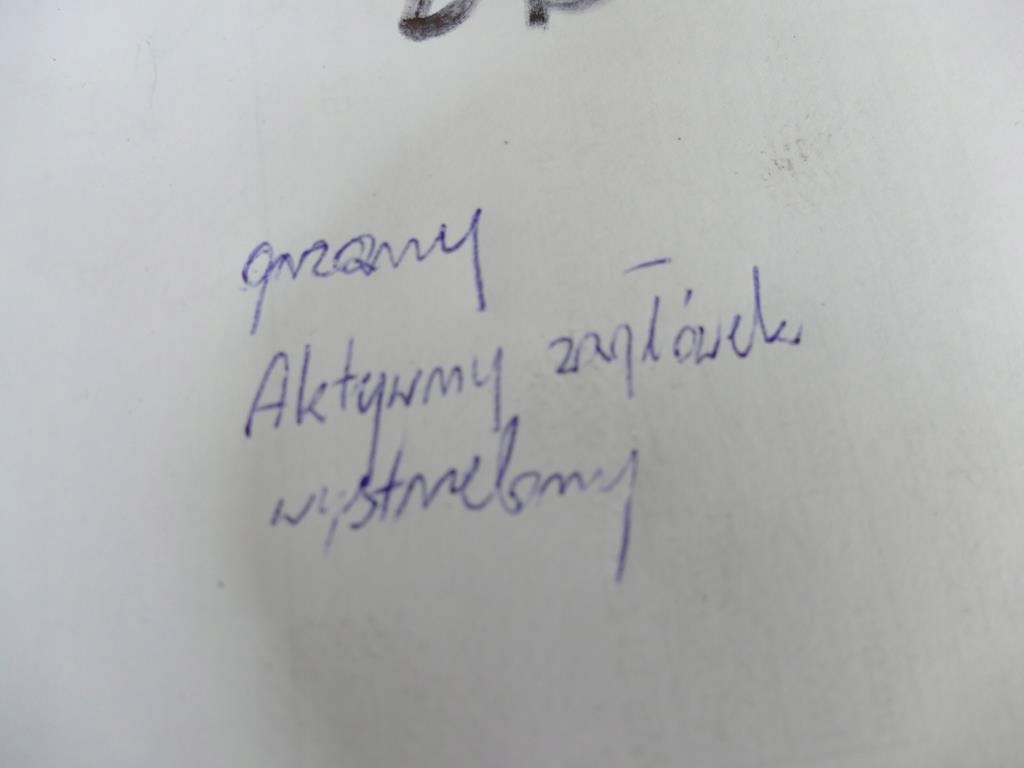 grzany
Aktywny zagłówek -
wystrzelony